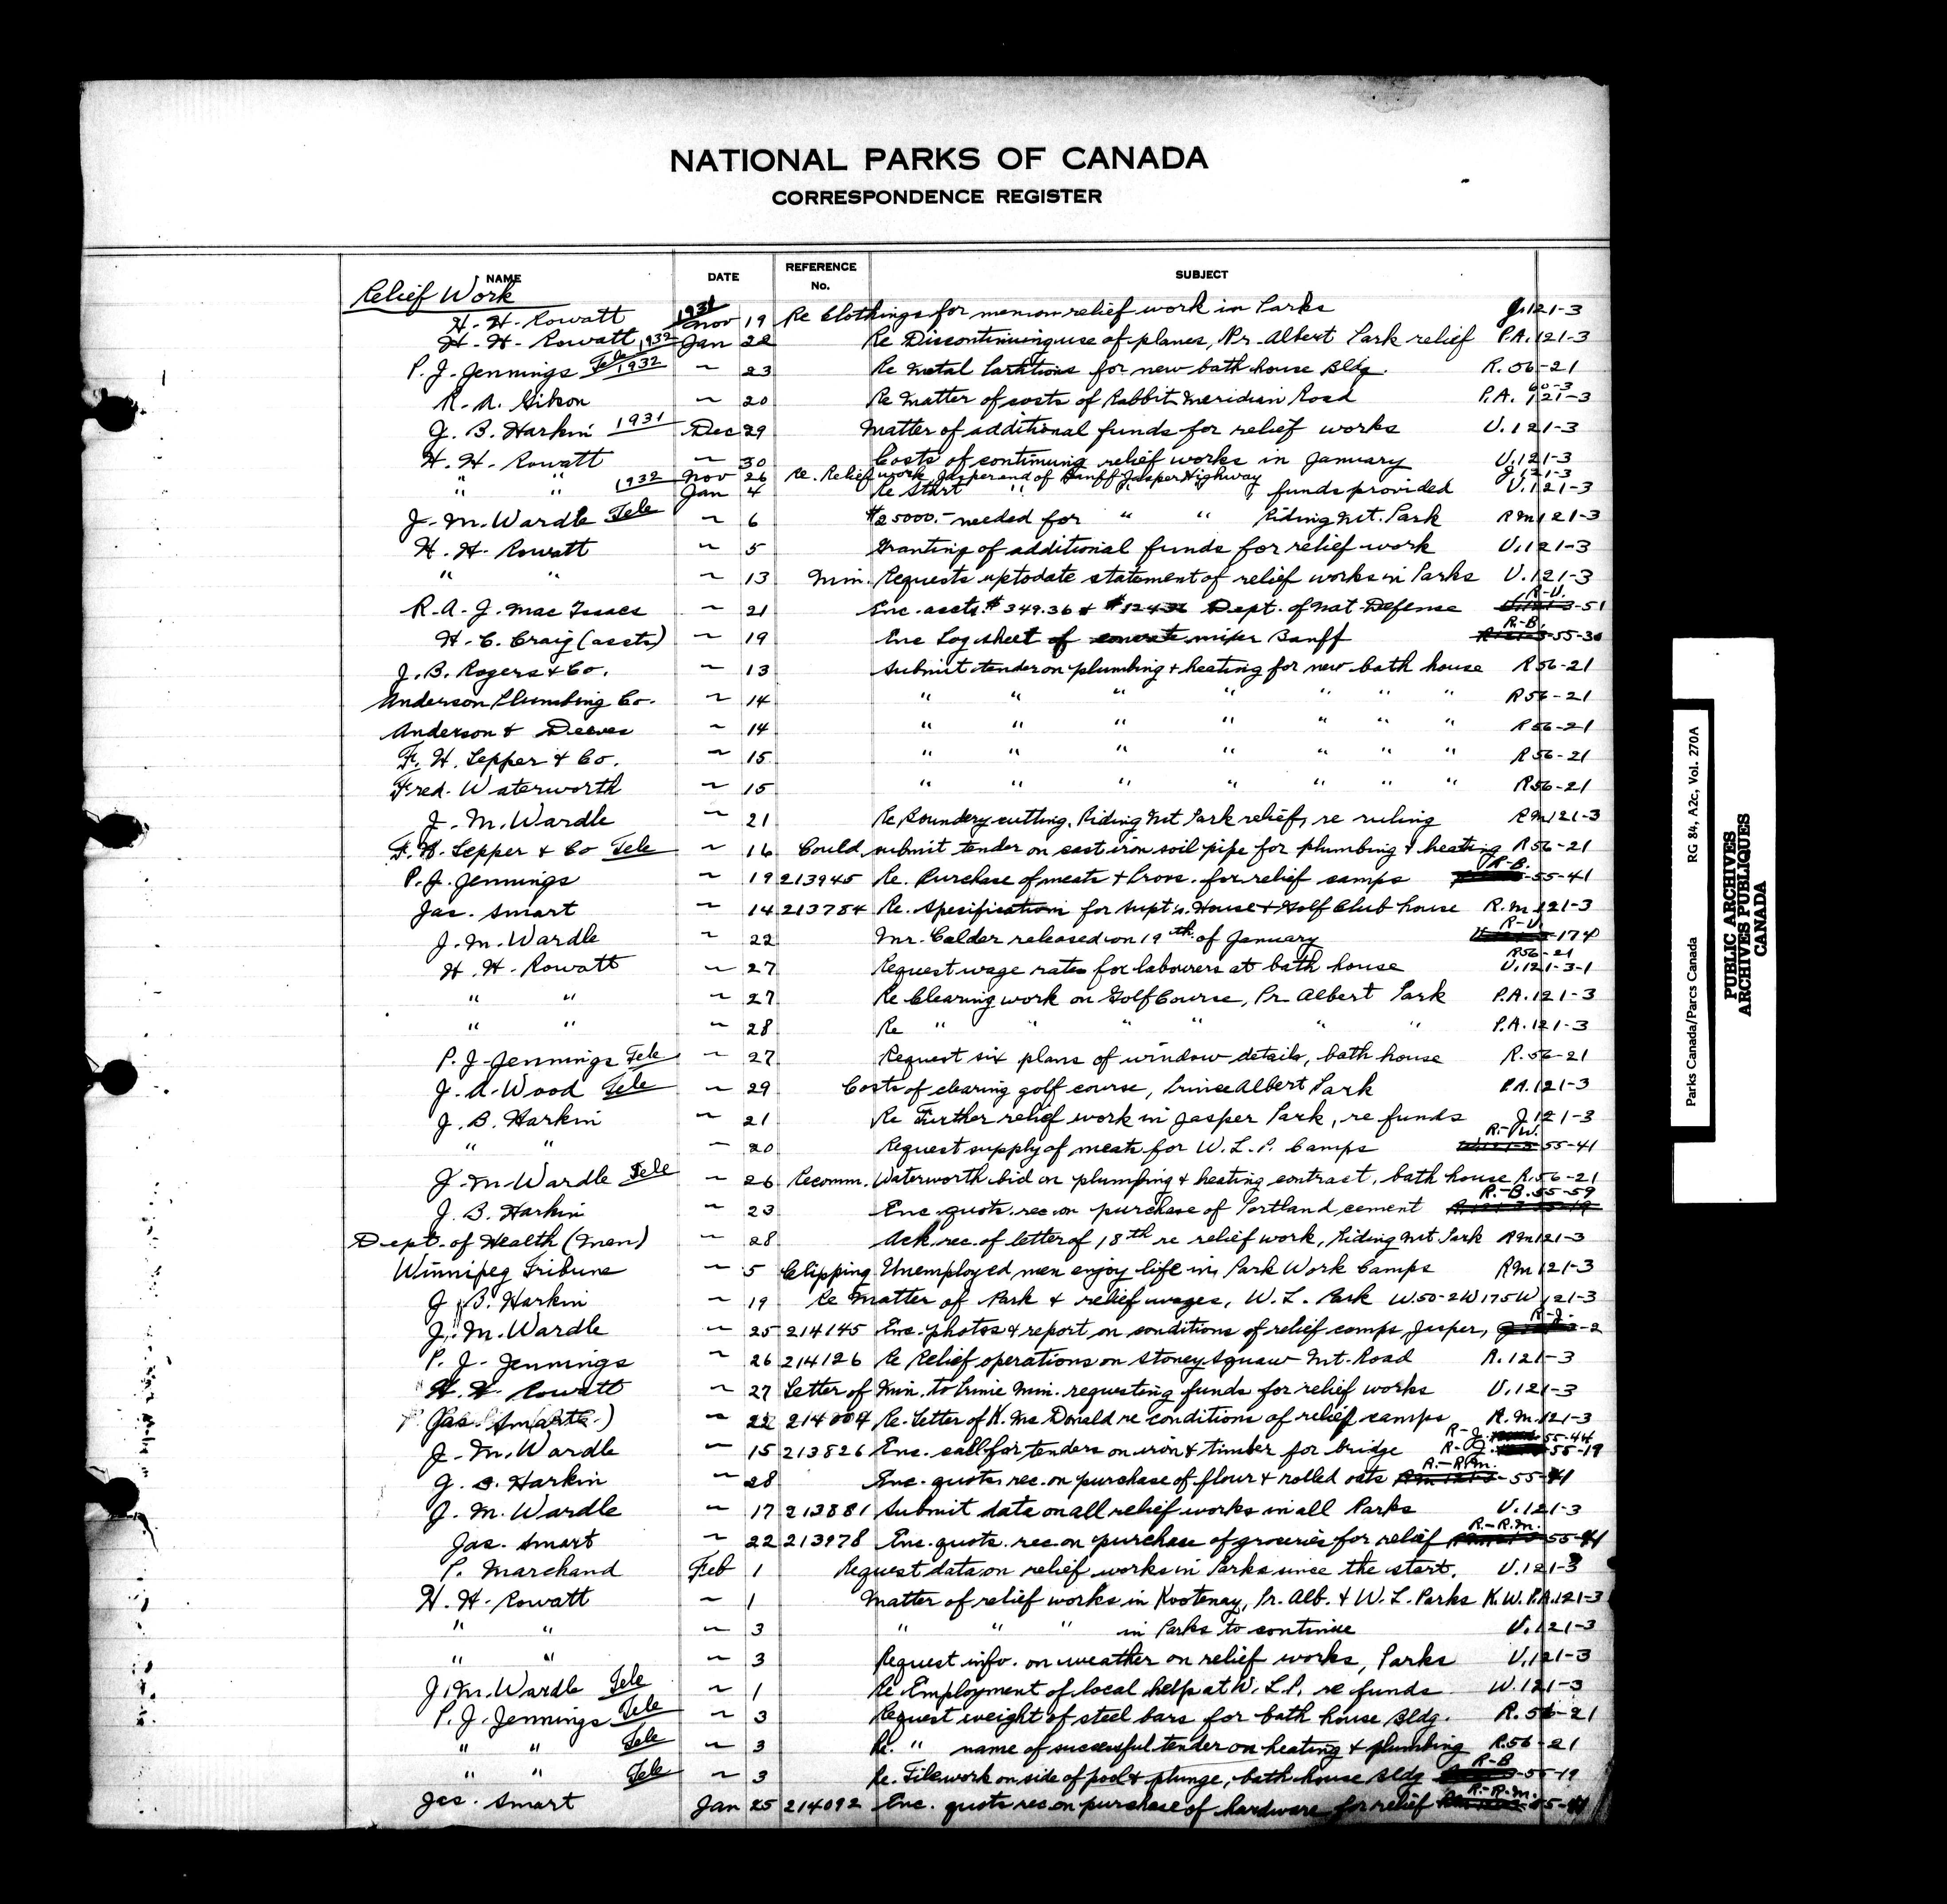 NATIONAL PARKS OF CANADA
CORRESPONDENCE REGISTER
NAME DATE REFERENCE No. SUBJECT
Relief Work
H. H. Rowatt 1931 Nov 19 Re Clothings for men on relief work in Parks J.121-3
H. H. Rowatt 1932 Jan 22 Re Discontinuing use of planes, Pr. Albert Park relief P.A.121-3
P. J. Jennings Tele 1932 ~ 23 Re Metal Partitions for new bath house Bldg. R.56-21
R. A. Gibson ~ 20 Re Matter of costs of Rabbit Meridian Road P.A. 60-3 121-3
J. B. Harkin 1931 Dec 29 Matter of additional funds for relief works U.121-3
H. H. Rowatt ~ 30 Costs of continuing relief works in January U.121-3
" " Nov 26 Re. Relief work Jasper end of Banff Jasper Highway J.121-3
" " 1932 Jan 4 Re Start " " funds provided U.121-3
J. M. Wardle Tele ~ 6 $25000.- needed for " " Riding Mt. Park RM121-3
H. H. Rowatt ~ 5 Granting of additional funds for relief work U.121-3
" " ~ 13 Min. Requests uptodate statement of relief works in Parks U.121-3
R. A. J. Mac Isaacs ~ 21 Enc. accts. $349.36 & Dept. of Nat Defense R-U. -51
H. C. Craig (accts) ~ 19 Enc Log sheet of concrete mixer Banff R-B. -55-30
J. B. Rogers & Co. ~ 13 Submit tender on plumbing & heating for new bath house R56-21
Anderson Plumbing Co. ~ 14 " " " " " " " R56-21
Anderson & Deeves ~ 14 " " " " " " " R56-21
F. H. Lepper & Co. ~ 15 " " " " " " " R56-21
Fred. Waterworth ~ 15 " " " " " " " R56-21
J. M. Wardle ~ 21 Re Boundery cutting, Riding Mt Park relief, re ruling RM121-3
F. H. Lepper & Co Tele ~ 16 Could submit tender on cast iron soil pipe for plumbing & heating R56-21
P. J. Jennings ~ 19 213945 Re. Purchase of meats & Provs. for relief camps R-B. -55-41
Jas. Smart ~ 14 213784 Re. Specifications for Supt's. House & Golf Club house R.M.121-3
J. M. Wardle ~ 22 Mr. Calder released on 19th of January R-U. -174
H. H. Rowatt ~ 27 Request wage rates for labourers at bath house R56-21 U.121-3-1
" " ~ 27 Re Clearing work on Golf Course, Pr Albert Park P.A.121-3
" " ~ 28 Re " " " " " " P.A.121-3
P. J. Jennings Tele ~ 27 Request six plans of window details, bath house R.56-21
J. A. Wood Tele ~ 29 Costs of clearing golf course, Prince Albert Park P.A.121-3
J. B. Harkin ~ 21 Re Further relief work in Jasper Park, re funds J.121-3
" " ~ 20 Request supply of meats for W. L. P. Camps R.-W. 55-41
J. M. Wardle Tele ~ 26 Recomm. Waterworth bid on plumbing & heating contract, bath house R.56-21
J. B. Harkin ~ 23 Enc. quots. rec. on purchase of Portland cement R.-B.55-59
Dept. of Health (Man) ~ 28 Ack rec. of letter of 18th re relief work, Riding Mt Park RM121-3
Winnipeg Tribune ~ 5 Clipping Unemployed men enjoy life in Park Work Camps RM121-3
J. B. Harkin ~ 19 Re Matter of Park & relief wages, W. L. Park W.50-2 W175 W.121-3
J. M. Wardle ~ 25 214145 Enc. photos & report on conditions of relief camps Jasper, R-J. -2
P. J. Jennings ~ 26 214126 Re Relief operations on Stoney Squaw Mt. Road R.121-3
H. H. Rowatt ~ 27 Letter of Min. to Prime Min. requesting funds for relief works U.121-3
Jas. Smart ~ 22 214004 Re. Letter of K. Mc Donald re conditions of relief camps R.M.121-3
J. M. Wardle ~ 15 213826 Enc. call for tenders on iron & timber for bridge R-J. 55-44 R-J. 55-19
J. B. Harkin ~ 28 Enc. quots. rec. on purchase of flour & rolled oats R.-R.M. -55-41
J. M. Wardle ~ 17 213881 Submit data on all relief works in all Parks U.121-3
Jas. Smart ~ 22 213978 Enc. quots. rec. on purchase of groceries for relief R.-R.M. 55-41
P. Marchand Feb 1 Request data on relief works in Parks since the start. U.121-3
H. H. Rowatt ~ 1 Matter of relief works in Kootenay, Pr. Alb. & W. L. Parks K.W.P.A.121-3
" " ~ 3 " " " in Parks to continue U.121-3
" " ~ 3 Request info. on weather on relief works, Parks U.121-3
J. M. Wardle Tele ~ 1 Re Employment of local help at W. L. P. re funds W.121-3
P. J. Jennings Tele ~ 3 Request weight of steel bars for bath house Bldg. R.56-21
" " Tele ~ 3 Re. " name of successful tender on heating & plumbing R.56-21
" " Tele ~ 3 Re. Tilework on side of pool & plunge, bath house Bldg R-B -55-19
Jas. Smart Jan 25 214092 Enc. quots rec on purchase of hardware for relief R.-R.M. 55-41
Parks Canada/Parcs Canada RG 84, A2c, Vol. 270A
PUBLIC ARCHIVES
ARCHIVES PUBLIQUES
CANADA